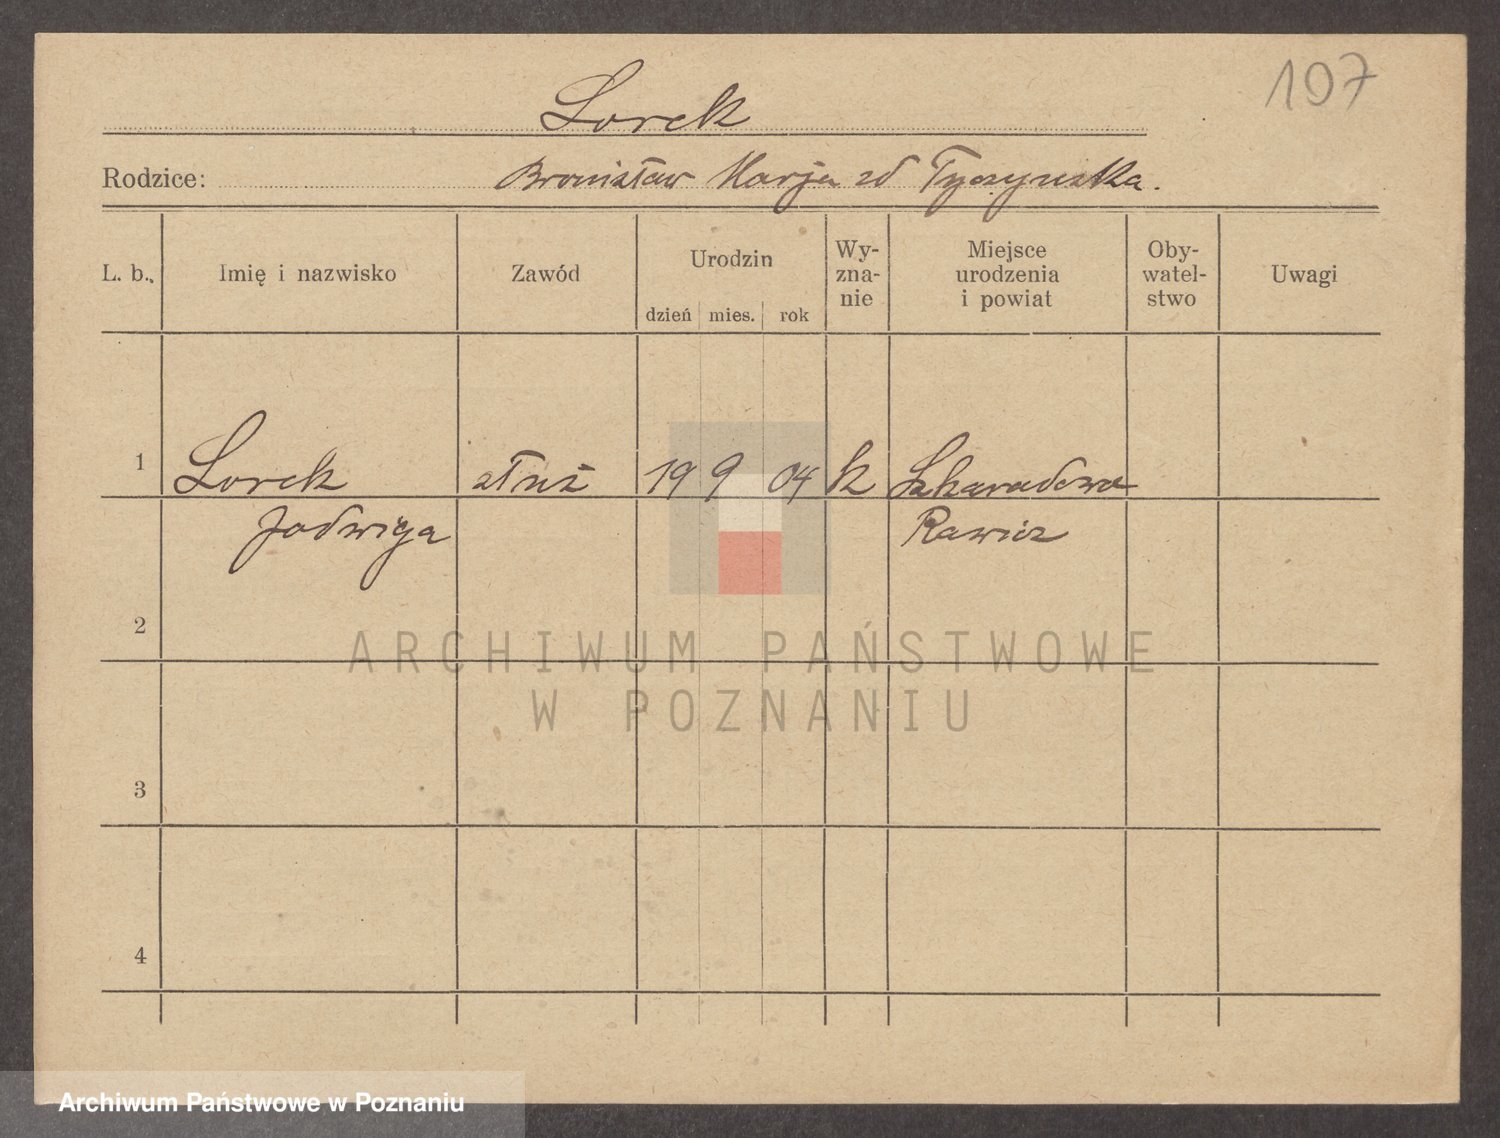 107
Lorek
Rodzice: Bronisław Marja zd
L. b., Imię i nazwisko Zawód Urodzin dzień mies. rok Wy-zna-nie Miejsce urodzenia i powiat Oby-watel-stwo Uwagi
1 Lorek służ 19 9 04 k Szkaradowo
Jadwiga Rawicz
2
ARCHIWUM PAŃSTWOWE
W POZNANIU
3
4
Archiwum Państwowe w Poznaniu